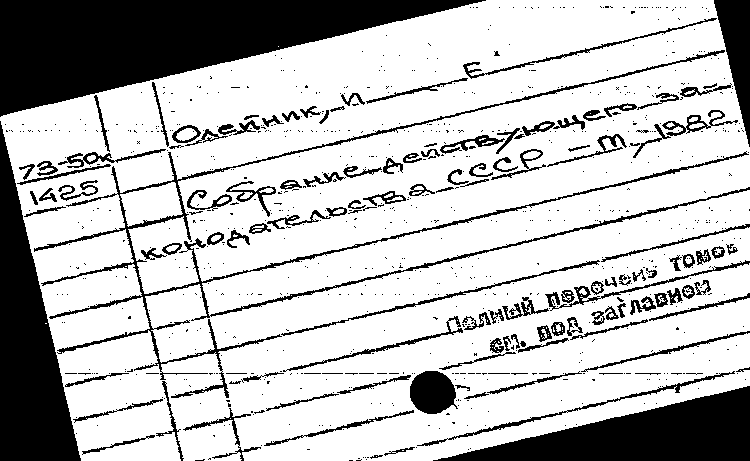 Олейник, И Е.
73-50к
1425
Собрание действующего за-
конодательства СССР - м, 1982
Полный перечень томов
см. под заглавием